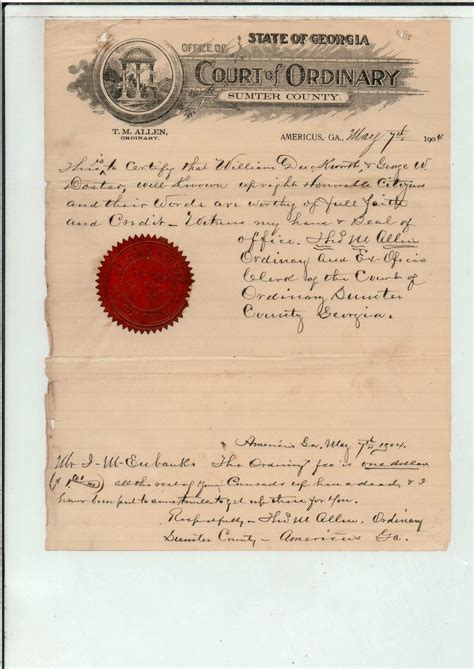 STATE OF GEORGIA
OFFICE OF
COURT of ORDINARY
SUMTER COUNTY.
T. M. ALLEN,
ORDINARY.
AMERICUS, GA., May 7th 1904
This is to Certify that William Duckworth & George W.
Doster, well Known upright Honorable Citizens
and their Words are worthy of full faith
and Credit – Witness my hand & Seal of
office. Thos M Allen
Ordinary and Ex Oficio
Clerk of the Court of
Ordinary Sumter
County Georgia.
Americus Ga, May 7th 1904.
Mr I-M-Eubanks The Ordinary fee is one dollar
all the rest of your Comrads up here dead, & I
have been put to some trouble to get up these for You.
Respectfully – Thos M Allen. Ordinary
Sumter County – Americus Ga.